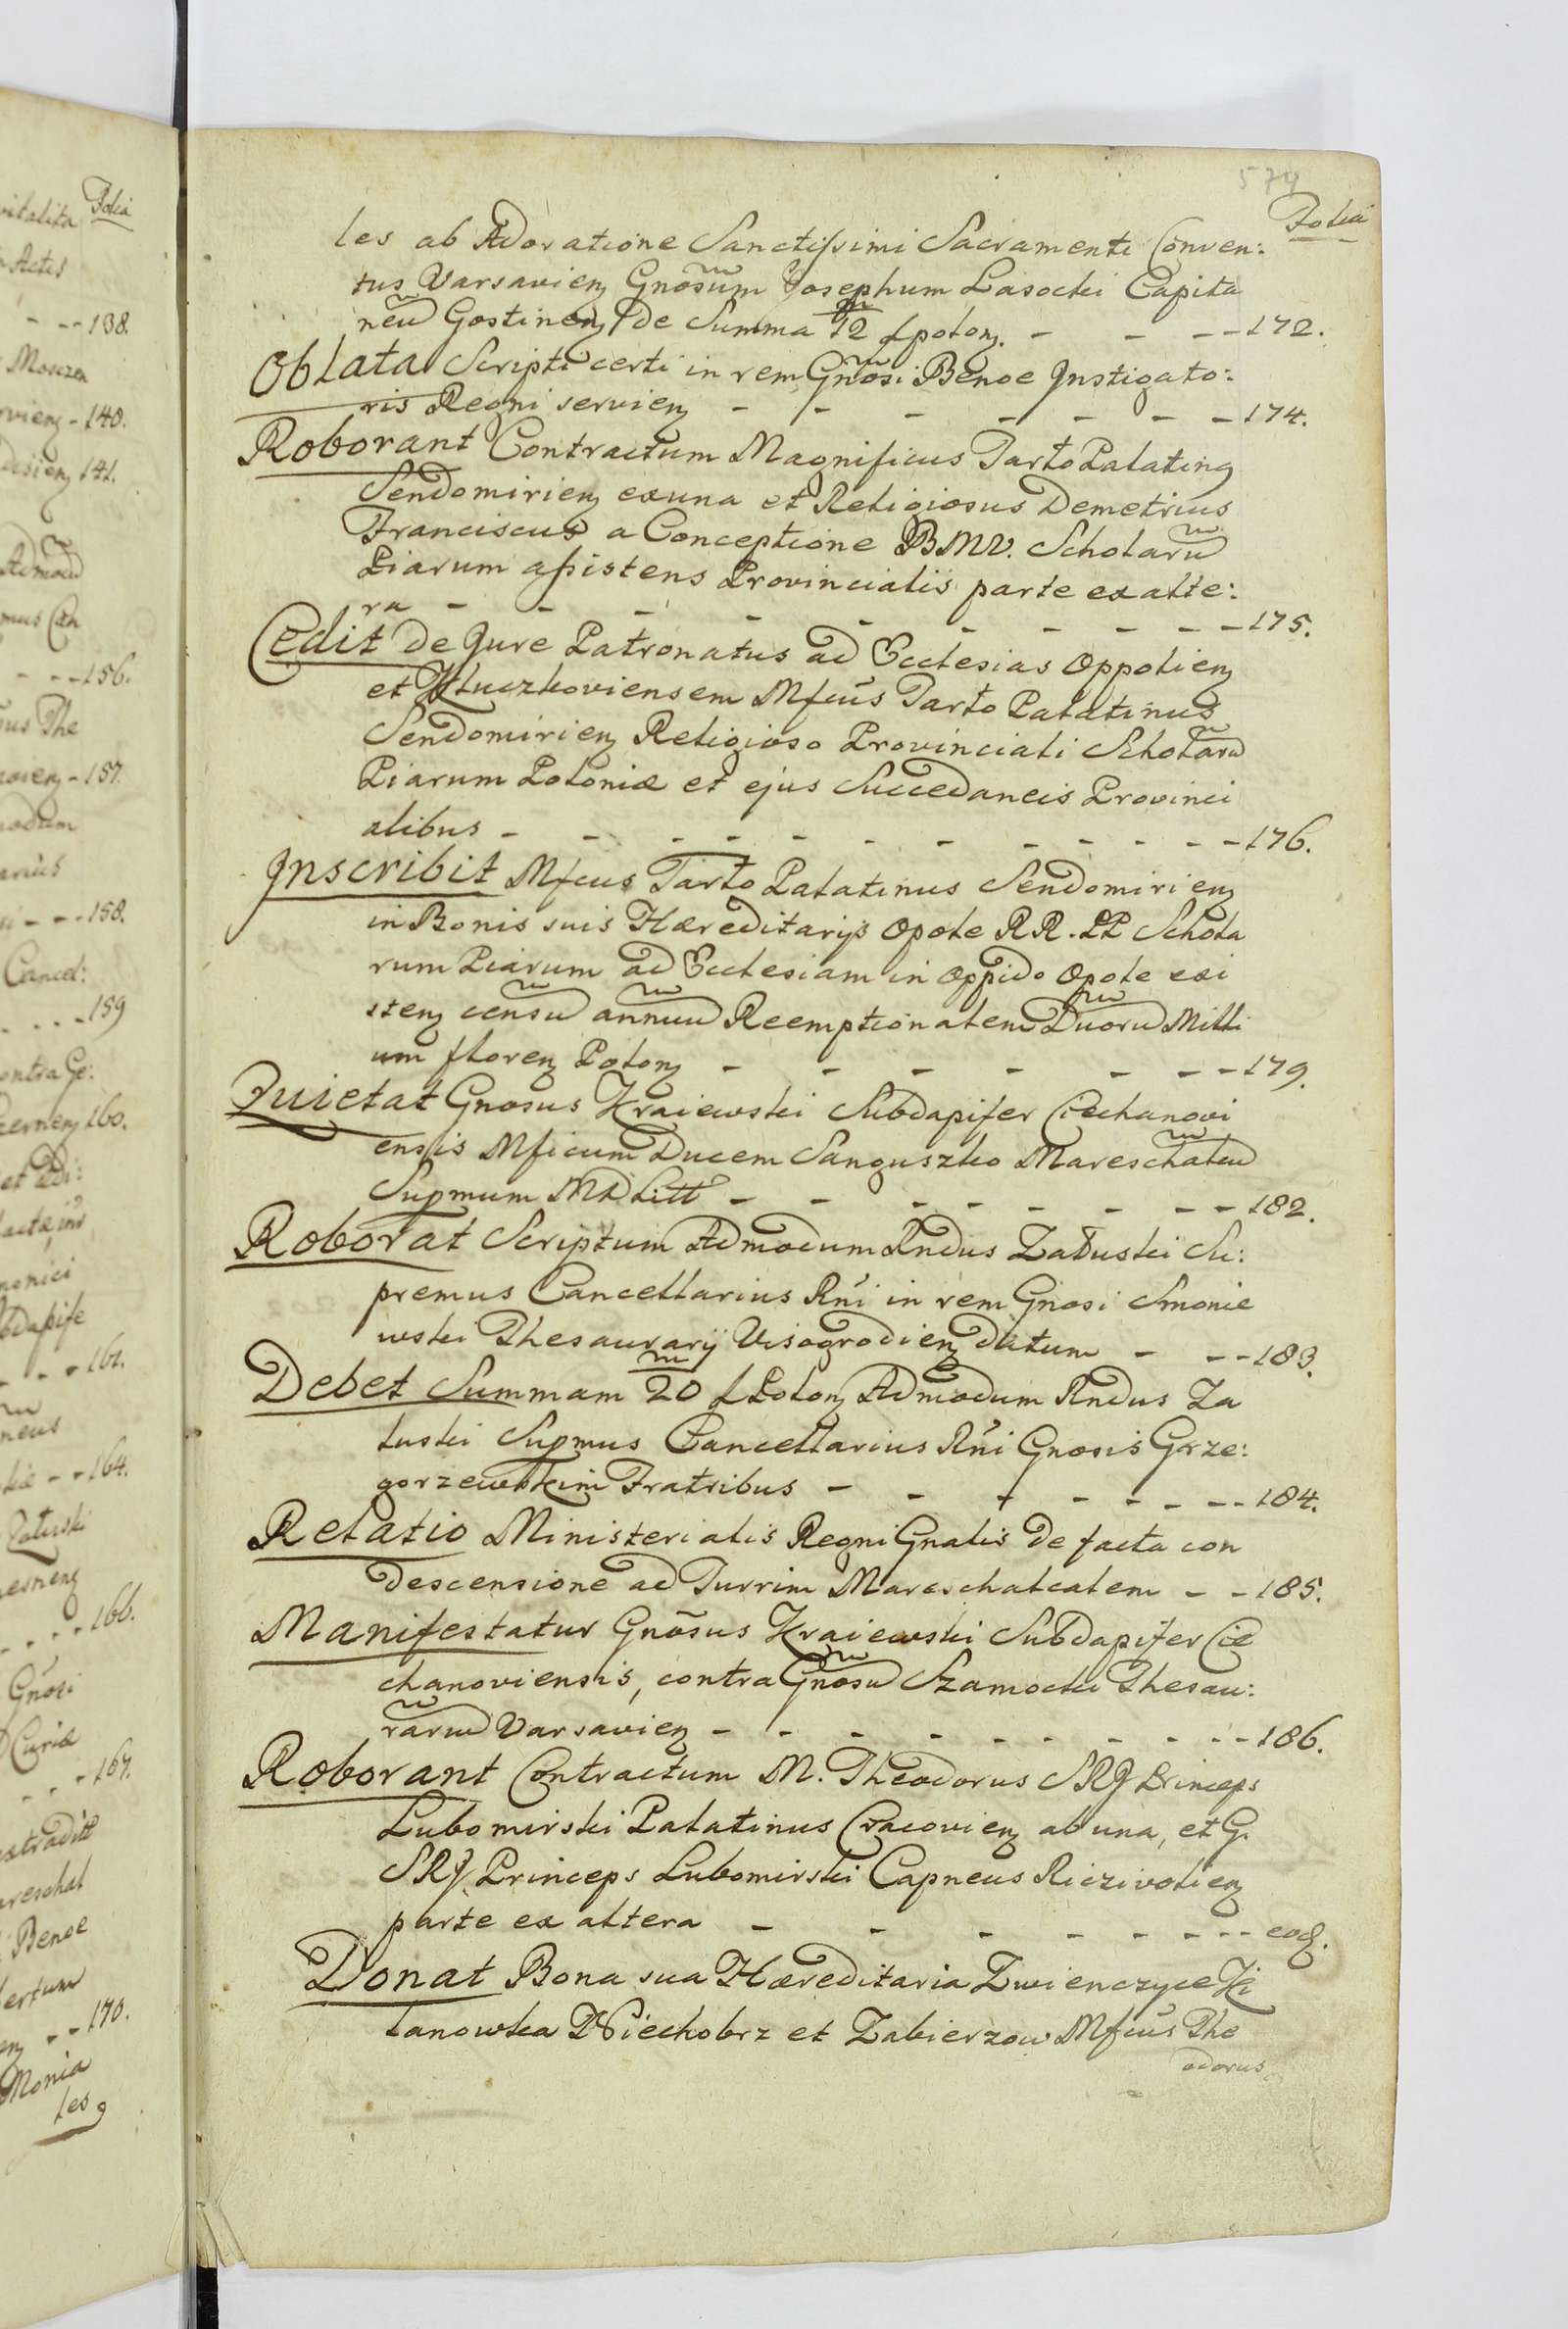 574
Folia
les ab Adoratione Sanctissimi Sacramenti Conven:
tus Varsavien Gnosum Josephum Lasocki Capita
neu Gostinen de Summa 12 m f polon. - - - - 172.
Oblata Scripti certi in rem Gnosi Benoe Instigato:
ris Regni servien - - - - - - - 174.
Roborant Contractum Magnificus Tarło Palatinus
Sendomirien exuna et Religiosus Demetrius
Franciscus a Conceptione BMV. Scholaru
Piarum assistens Provincialis parte ex alte:
ra - - - - - - - - - - 175.
Cedit de Jure Patronatus ad Ecclesias Oppolien
et Kluczkoviensem Mfcus Tarło Palatinus
Sendomirien Religioso Provinciali Scholaru
Piarum Poloniæ et ejus Succedaneis Provinci
alibus - - - - - - - - - - - 176.
Inscribit Mfcus Tarło Palatinus Sendomirien
in Bonis suis Hæreditarijs Opole RR. PP Schola
rum Piarum ad Ecclesiam in Oppido Opole exi
sten censu annuu Reemptionalem Duoru Milli
um floren Polon - - - - - - - 179.
Quietat Gnosus Kraiewski Subdapifer Ciechanovi
ensis Mficum Ducem Sanguszko Mareschalcu
Supmum MD Litt - - - - - - - - 182.
Roborat Scriptum Admodum Rndus Załuski Su:
premus Cancellarius Rni in rem Gnosi Smonie
wski Thesaurarij Visogrodien datum - - - 183.
Debet Summam 20 m f Polon Admodum Rndus Za
łuski Supmus Cancellarius Rni Gnosis Grze:
gorzewskim Fratribus - - - - - - - - 184.
Relatio Ministerialis Regni Gnalis de facta con
descensione ad Turrim Mareschalcalem - - 185.
Manifestatur Gnosus Kraiewski Subdapifer Cie
chanoviensis, contra Gnosu Szamocki Thesau:
rariu Varsavien - - - - - - - - - - 186.
Roborant Contractum M. Theodorus SRJ Princeps
Lubomirski Palatinus Cracovien ab una, et G.
SRJ Princeps Lubomirski Capneus Riczivolien
parte ex altera - - - - - - - - eod.
Donat Bona sua Hæreditaria Zwienczyce Ki
lanowka Niechobrz et Zabierzow Mfcus The
odorus
Folia
vitalita
Actis
- - - 138.
- 140.
141.
Admodu
- - - 156.
us The
- 157.
- - - 158.
Cancel:
- - - - 159
contra Ge:
160.
et Adi:
- - - 161.
- - 164.
Załuski
- - - - 166.
Gnosi
Curiæ
- - - 167.
Benoe
- - 170.
Monia
les